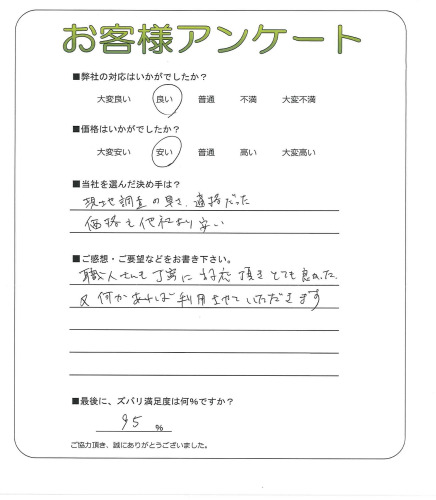 お客様アンケート
■弊社の対応はいかがでしたか？
大変良い 良い 普通 不満 大変不満
■価格はいかがでしたか？
大変安い 安い 普通 高い 大変高い
■当社を選んだ決め手は？
現地調査の早さ、適格だった
価格も他社より安い
■ご感想・ご要望などをお書き下さい。
職人さんも丁寧に対応頂きとても良かった。
又何かあれば利用させていただきます
■最後に、ズバリ満足度は何%ですか？
95 %
ご協力頂き、誠にありがとうございました。